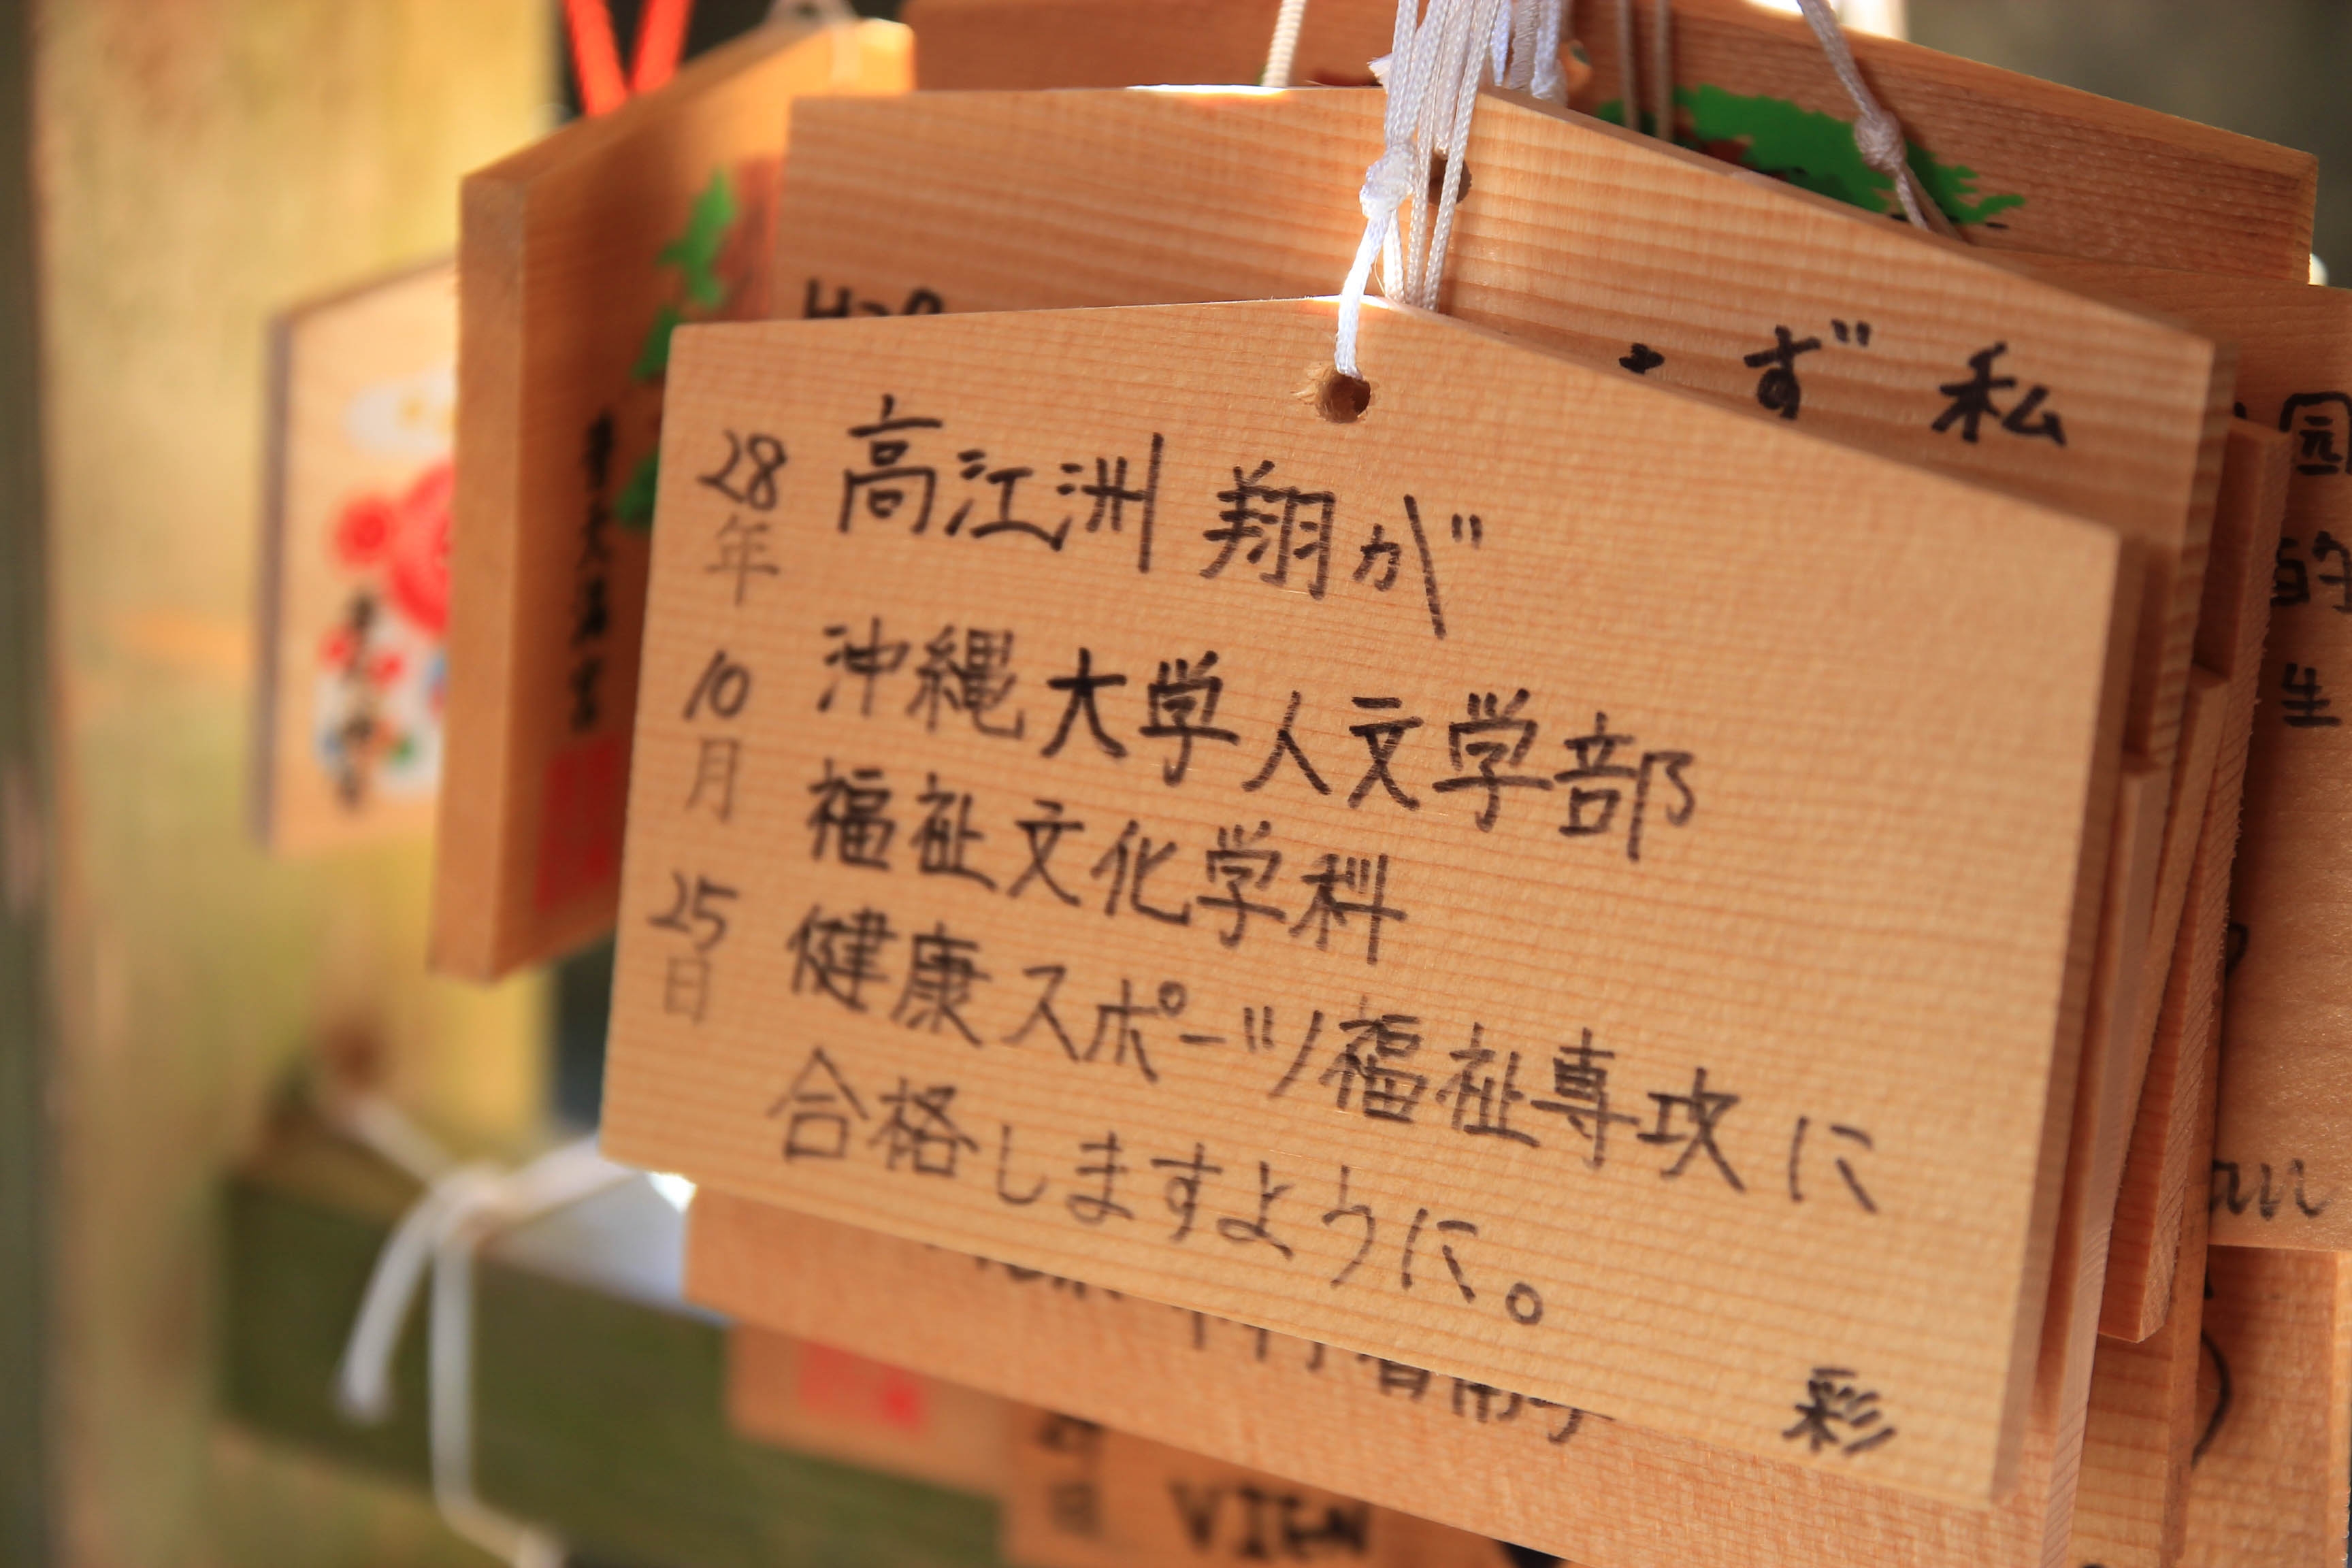 高江洲 翔が
沖縄大学人文学部
福祉文化学科
健康スポーツ福祉専攻に
合格しますように。
彩
28年10月25日
ず 私
園
的
生
an
VIEN